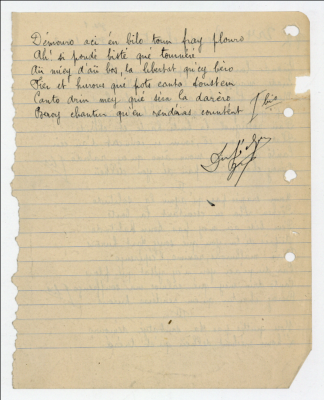 Démouro aci én bilo toun fray plouro
Ah! si poudé biste qué tournéré
Au miey d'aü bos, la libertat qu'ey bèro
Fier et hurous que pots canta soulet
Canto drin mey qué sii la darèro
Praoy chantur qu'en rendéras countent
bis